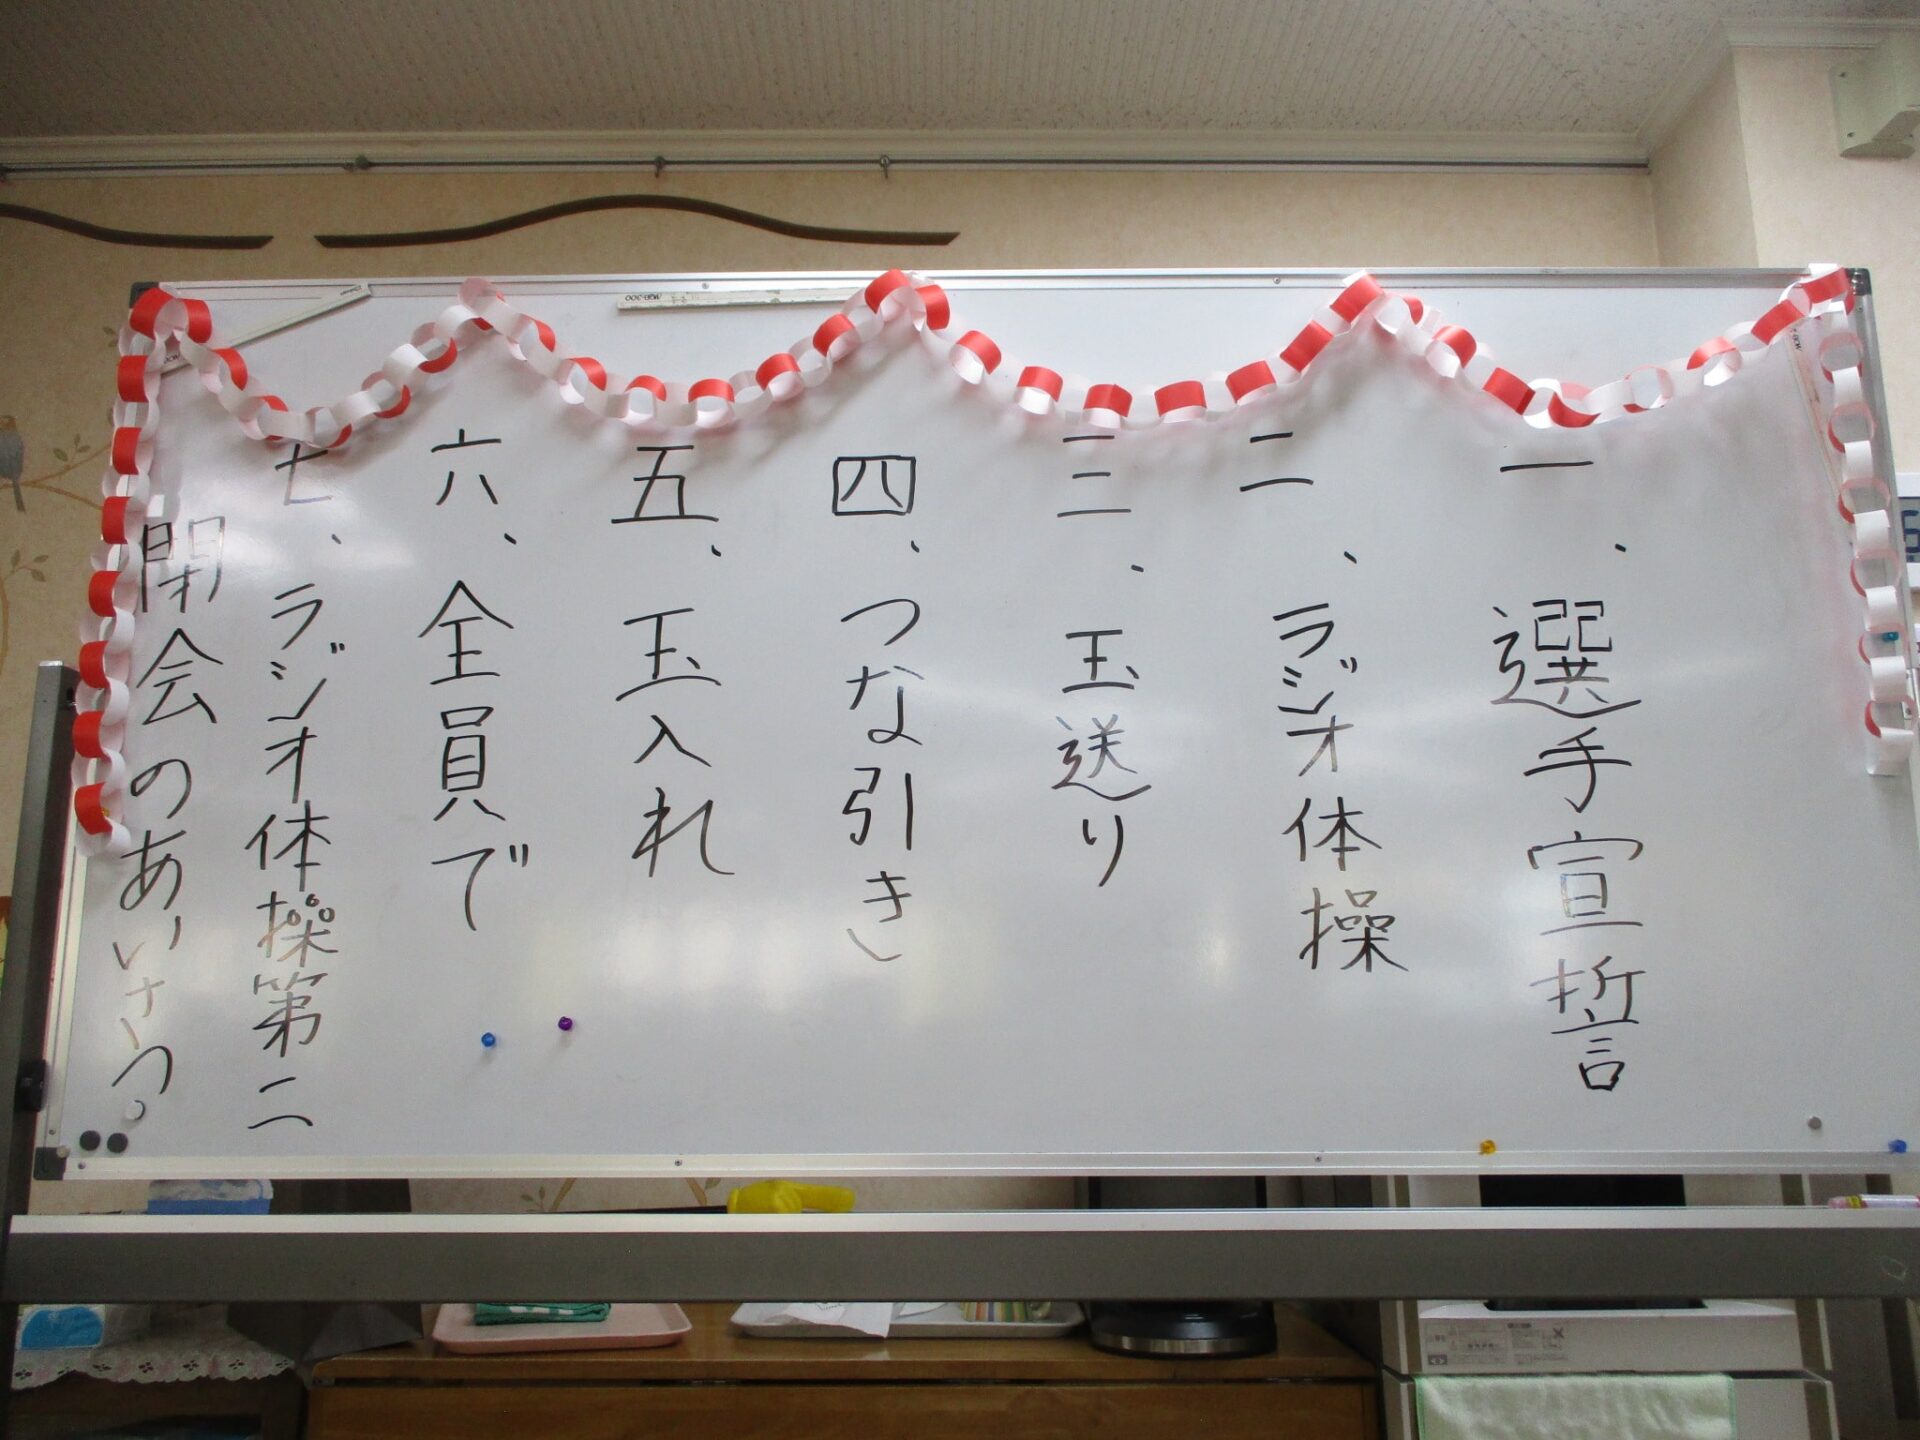 一、選手宣誓
二、ラジオ体操
三、玉送り
四、つな引き
五、玉入れ
六、全員で
七、ラジオ体操第二
閉会のあいさつ。